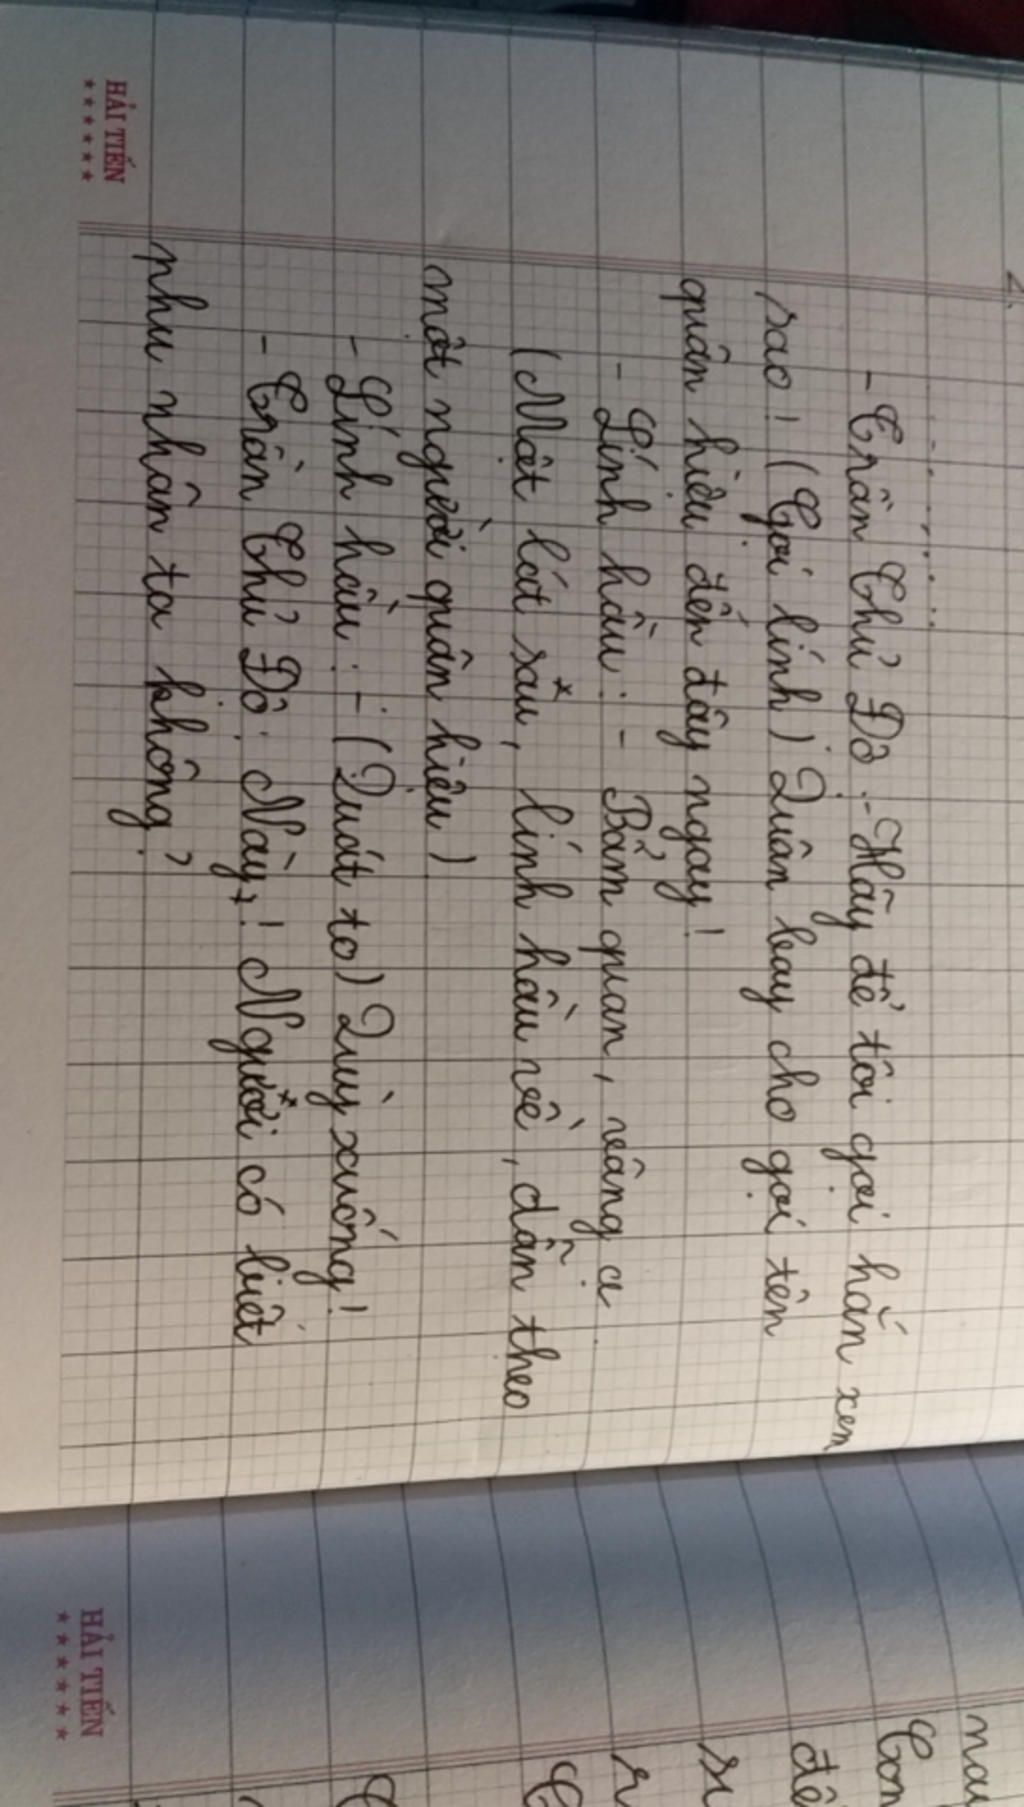 2.
- Trần Thủ Độ: - Hãy để tôi gọi hắn xem
sao! (Gọi lính) Quân bay cho gọi tên
quân hiệu đến đây ngay!
- Lính hầu: - Bẩm quan, vâng ạ.
(Một lát sau, lính hầu về, dẫn theo
một người quân hiệu)
- Lính hầu: - (Quát to) Quỳ xuống!
- Trần Thủ Độ: Này! Người có biết
phu nhân ta không?
HẢI TIẾN
nau
Con
đề
HẢI TIẾN